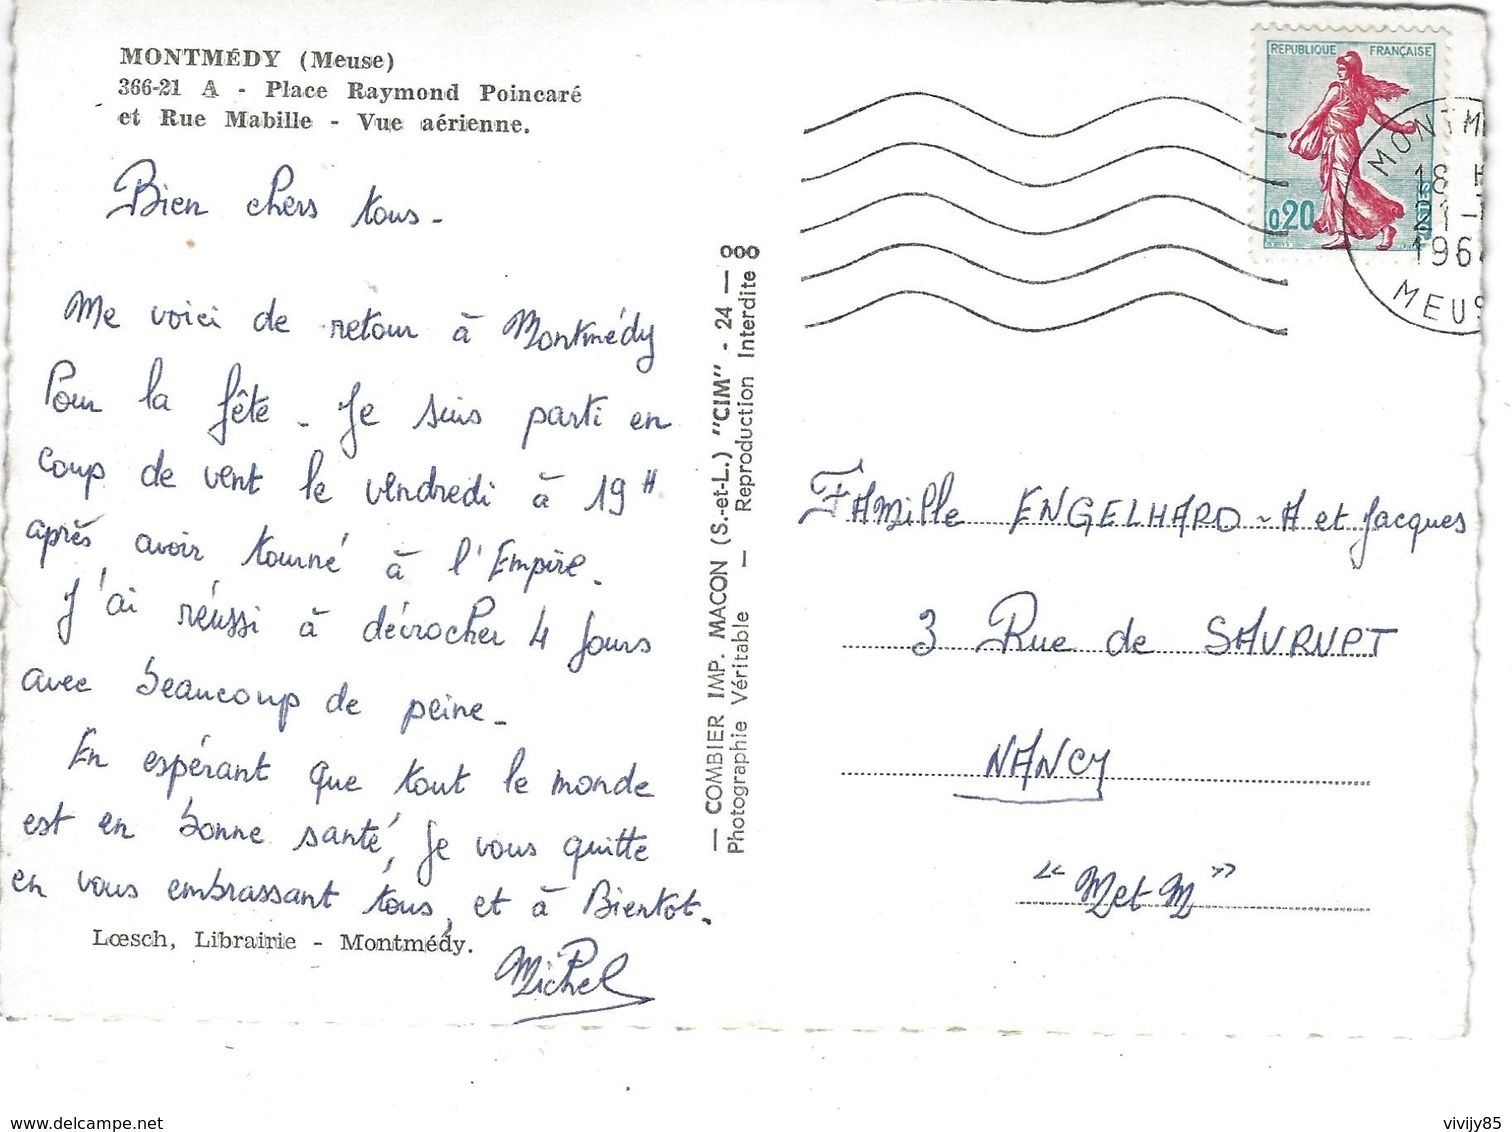 MONTMÉDY (Meuse)
366-21 A - Place Raymond Poincaré
et Rue Mabille - Vue aérienne.
Bien chers tous -
Me voici de retour à Montmédy
Pour la fête - Je suis parti en
coup de vent le vendredi à 19 H
après avoir tourné à l'Empire.
J'ai réussi à décrocher 4 jours
avec beaucoup de peine -
En espérant que tout le monde
est en bonne santé, je vous quitte
en vous embrassant tous, et à Bientot.
Michel
Lœsch, Librairie - Montmédy.
— COMBIER IMP. MACON (S.-et-L.) "CIM" - 24 — 000
Photographie Véritable — Reproduction Interdite
REPUBLIQUE FRANÇAISE
0,20
POSTES
18 H
21-
196
MEUS
FAMille ENGELHARD - A et Jacques
3 Rue de SAURUPT
NANCY
"M et M"
vivijy85